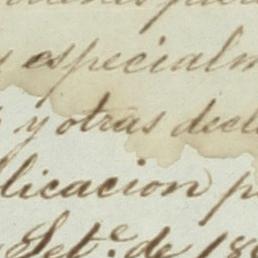 y especialm
y otras decl
licacion p
Set.e de 18